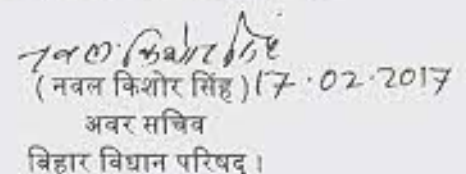 नवल किशोर सिंह
(नवल किशोर सिंह) 17.02.2017
अवर सचिव
बिहार विधान परिषद्।